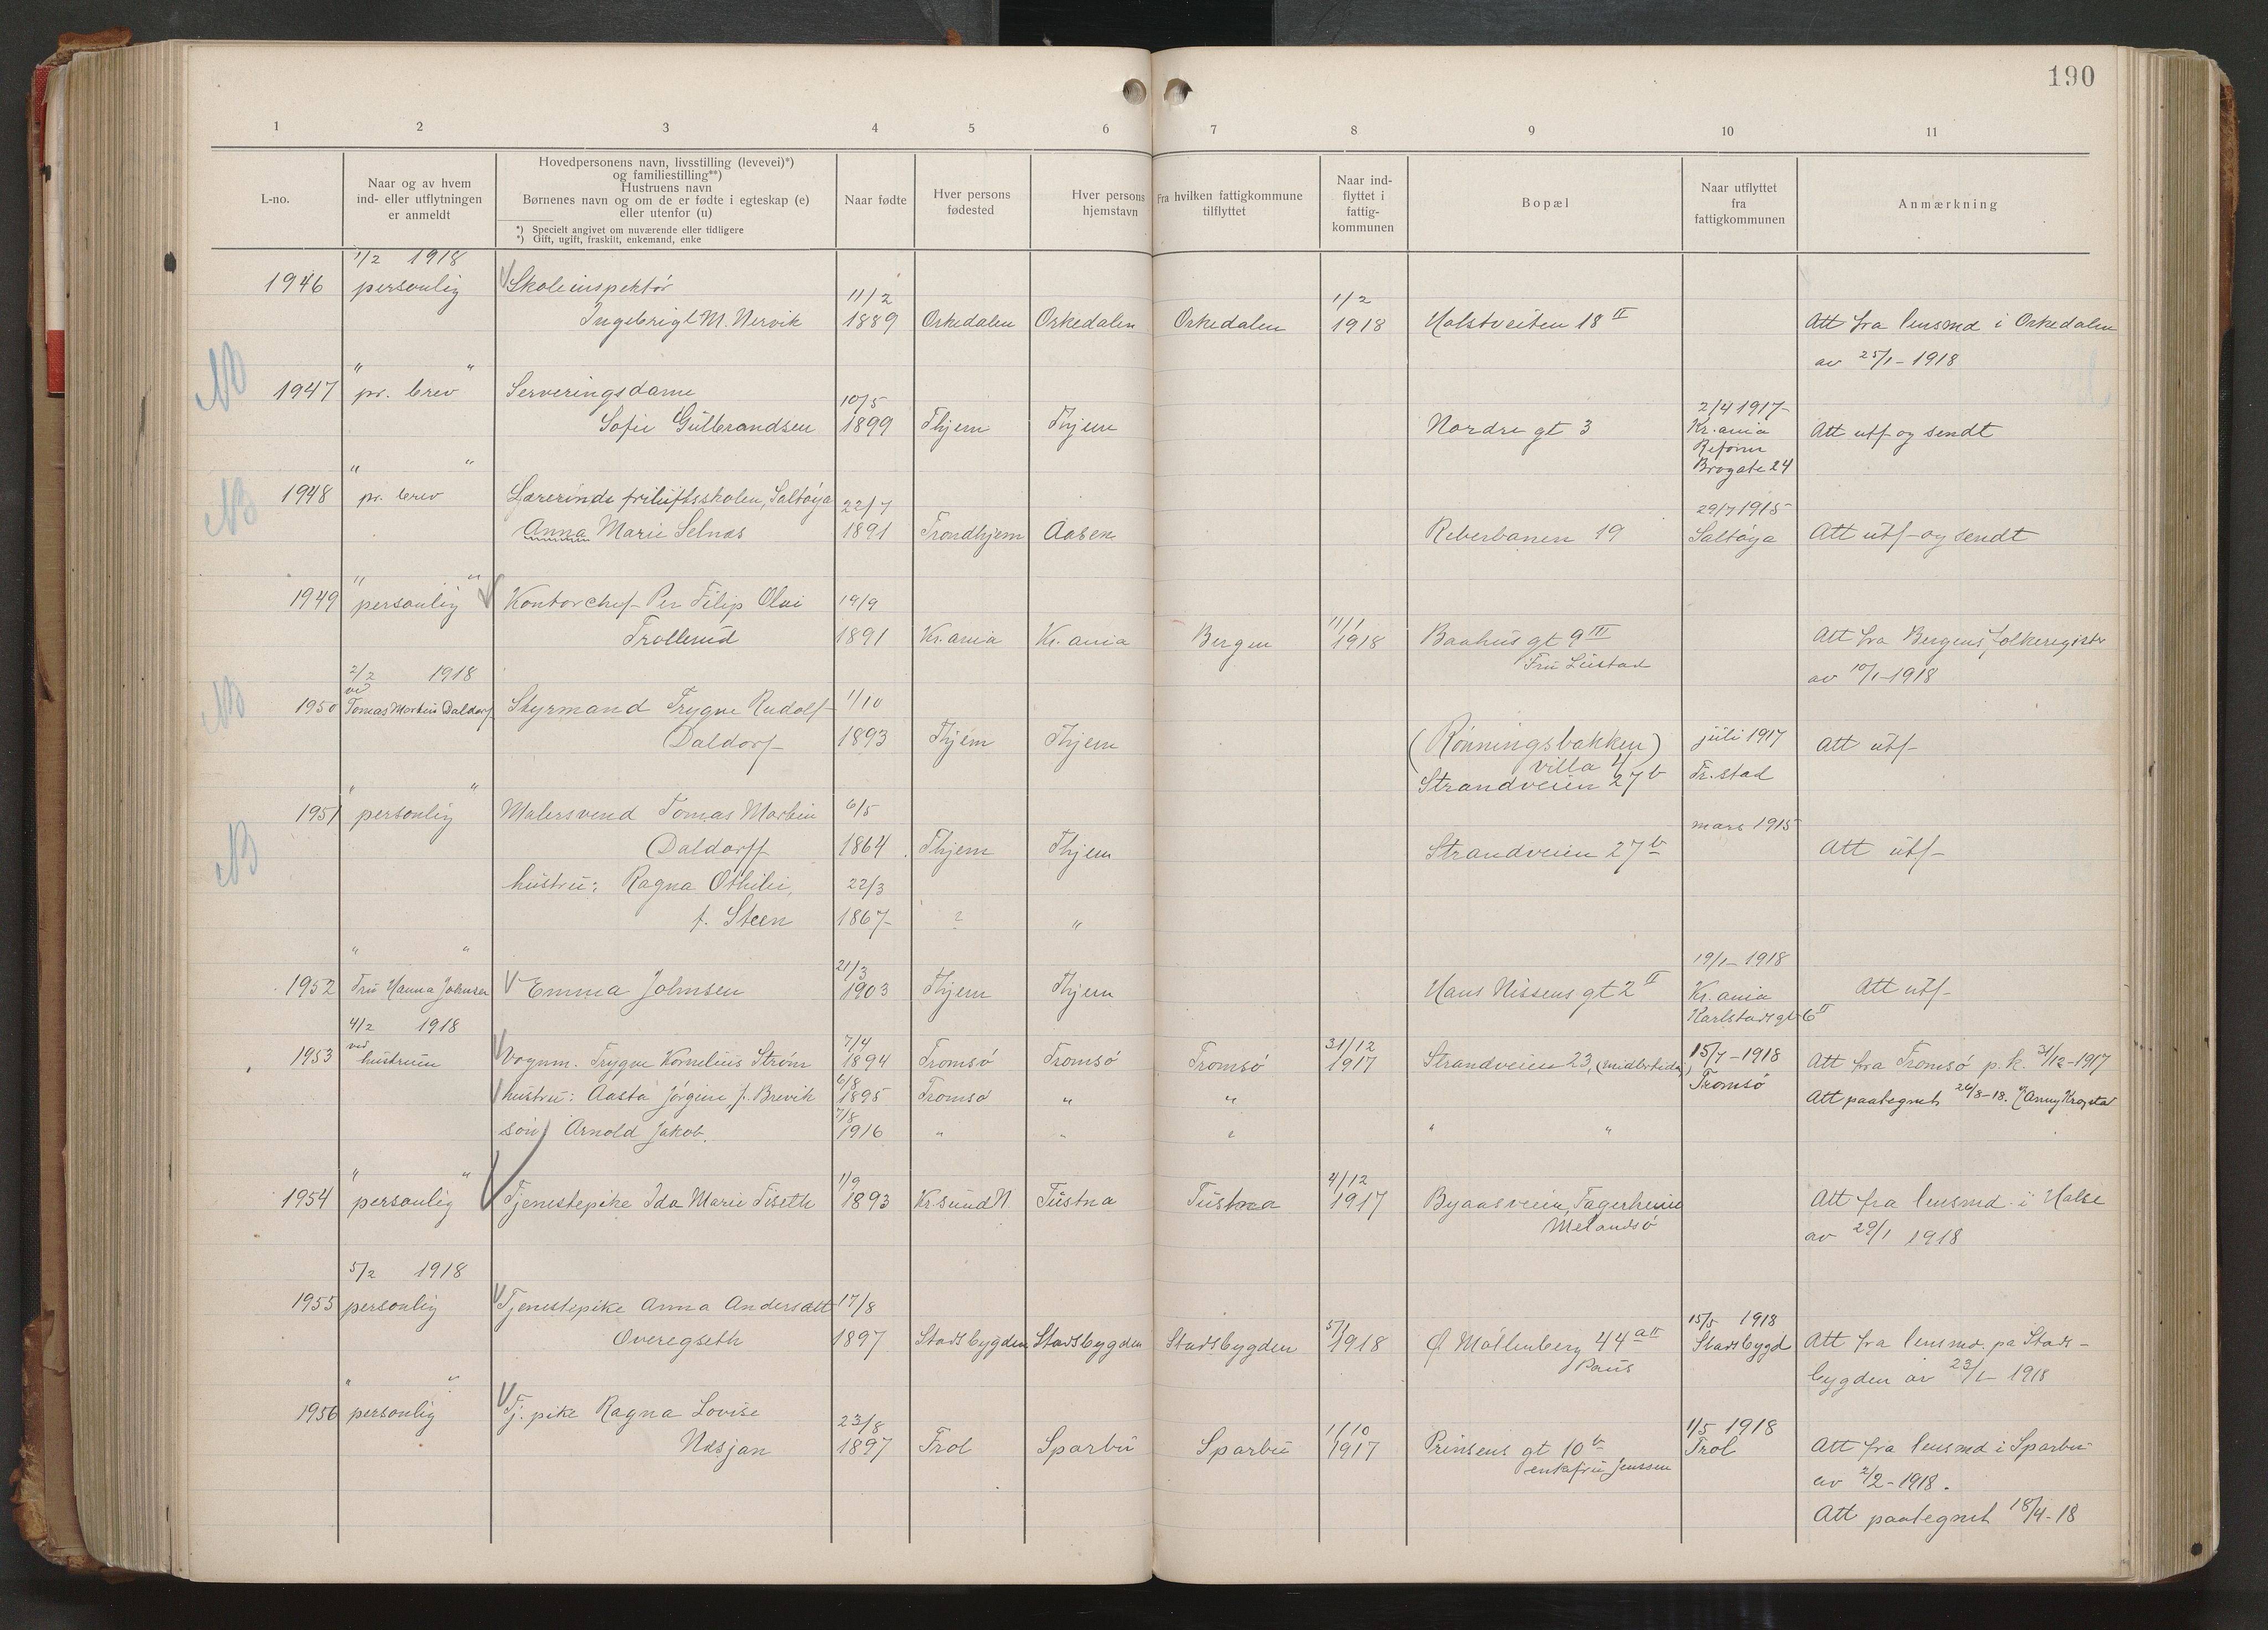 190
1 2 3 4 5 6 7 8 9 10 11
L-no.
Naar og av hvem
ind- eller utflytningen
er anmeldt
Hovedpersonens navn, livsstilling (levevei)*)
og familiestilling**)
Hustruens navn
Børnenes navn og om de er fødte i egteskap (e)
eller utenfor (u)
*) Specielt angivet om nuværende eller tidligere
*) Gift, ugift, fraskilt, enkemand, enke
Naar fødte
Hver persons
fødested
Hver persons
hjemstavn
Fra hvilken fattigkommune
tilflyttet
Naar ind-
flyttet i
fattig-
kommunen
Bopæl
Naar utflyttet
fra
fattigkommunen
Anmærkning
1/2 1918
1946 personlig Skoleinspektör 11/2 1/2
Ingebrigt M. Nervik 1889 Orkedalen Orkedalen Orkedalen 1918 Halstveiten 18 II Att fra lensmd i Orkedalen
av 25/1 - 1918
" "
1947 pr. brev Serveringsdame 10/5 2/4 1917
Sofie Gülbrandsen 1899 Thjem Thjem Nordre gt 3 Kr.ania Att utf og sendt
Reform
Brogate 24
" "
1948 pr. brev Lærerinde friluftsskolen, Saltöya 22/7 29/7 1915
Anna Marie Selnæs 1891 Trondhjem Aasen Reberbanen 19 Saltöya Att utf og sendt
" "
1949 personlig Kontorchef Per Filip Olai 19/9 11/1
Trollerud 1891 Kr.ania Kr.ania Bergen 1918 Baahus gt 9 III Att fra Bergens folkeregister
Fru Lüstad av 10/1-1918
2/2 1918
ved
1950 Tomas Martin Daldorf Styrmand Trygve Rudolf 1/10
Daldorf 1893 Thjem Thjem (Rönningsbakken) juli 1917 Att utf
villa 4
Strandveien 27b Fr.stad
" "
1951 personlig Malersvend Tomas Martin 6/5 mars 1915
Daldorff 1864 Thjem Thjem Strandveien 27b Att utf
hustru: Ragna Othilie, 22/3
f. Steen 1867 ? "
" "
1952 Fru Hanna Johnsen Emma Johnsen 21/3 1903 Thjem Thjem Hans Nissens gt 2 II 19/1-1918 Kr.ania Att utf
Karlstads gt 6 II
4/2 1918
ved
1953 hustruen Vognm. Trygve Kornelius Ström 7/4 1894 Tromsö Tromsö Tromsö 31/12 1917 Strandveien 23, (midlertidig) 15/7-1918 Att fra Tromsö p.k. 31/12-1917
hustru: Aasta Jörgine f. Brevik 6/8 1895 Tromsö " " Tromsö Att paategnet 26/8-18.
sön) Arnold Jakob. 7/8 1916 " " " " "
" "
1954 personlig Tjenestepike Ida Marie Fiseth 1/9 1893 Kr.sund N. Tüstna Tustna 4/12 1917 Byaasveien, Fagerheim Att fra lensmd. i Halse
Melandsö av 29/1 1918
5/2 1918
1955 personlig Tjenestepike Anna Andersdtt 17/8
Overegseth 1897 Stadsbygden Stadsbygden Stadsbygden 5/1 1918 Ø Möllenberg 44 a II 15/5 1918 Stadsbygd Att fra lensmd. pa Stads-
Paus bygden av 23/1 1918
" "
1956 personlig Tj. pike Ragna Lovise
Næsjan 23/8 1897 Frol Sparbu Sparbu 1/10 1917 Prinsens gt 10 b 1/5 1918 Frol Att fra lensmd i Sparbu
enkefru Jenssen av 2/2-1918.
Att paategnet 18/4-18